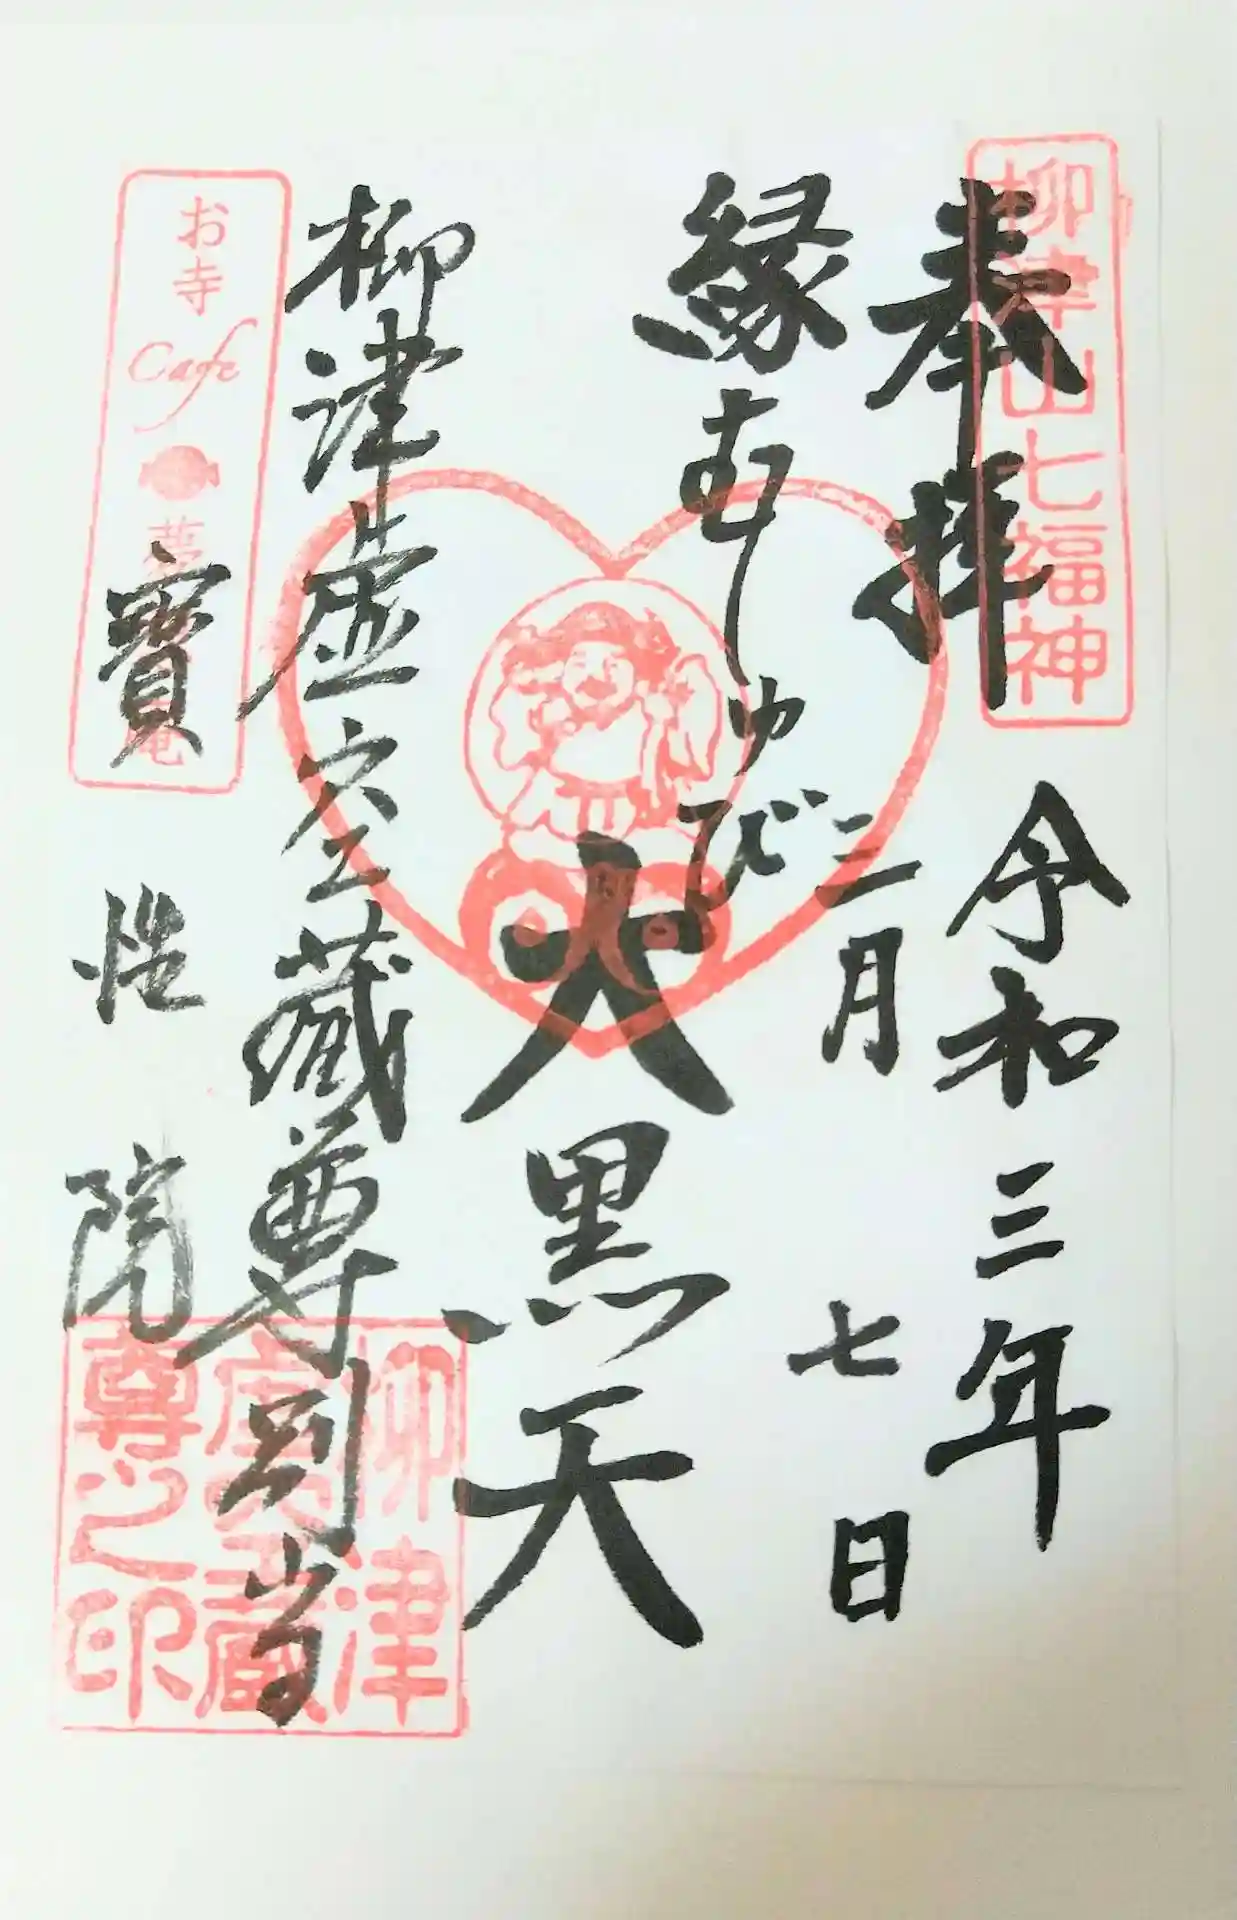 柳津山七福神
奉拝
令和三年
三月七日
縁むすび
大黒天
柳津虚空蔵尊別当
寳性院
お寺
Cafe
柳津
虚空蔵
尊之印